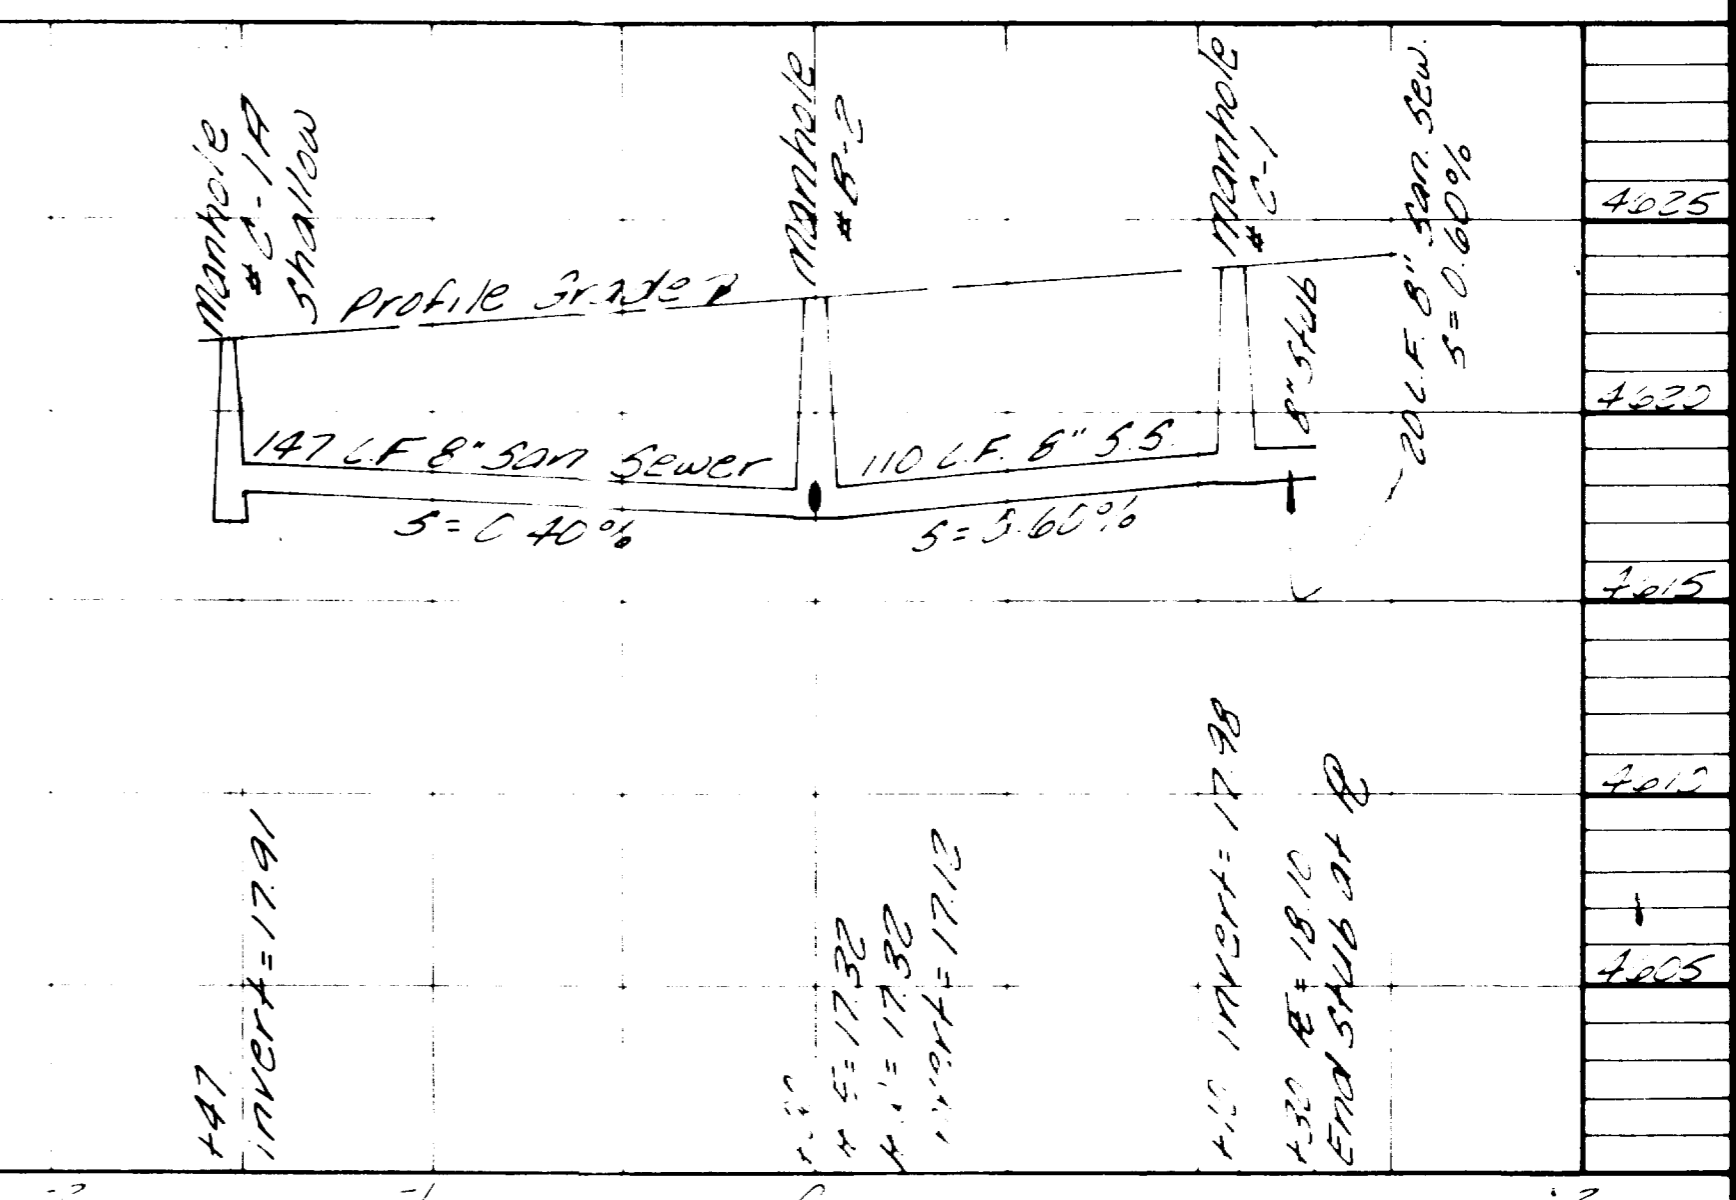 Manhole
# C-1A
Shallow
Manhole
# B-2
Manhole
# C-1
20 L.F. 8" San. Sew.
S=0.60%
8" Stub
Profile Grade
147 L.F. 8" San Sewer
S=0.40%
110 L.F. 8" S.S.
S=0.60%
4625
4620
4615
4610
4605
+47
invert = 17.91
E = 17.32
= 17.32
invert = 17.12
+10 invert = 17.98
+30 = 18.10
End Stub at
-2
-1
0